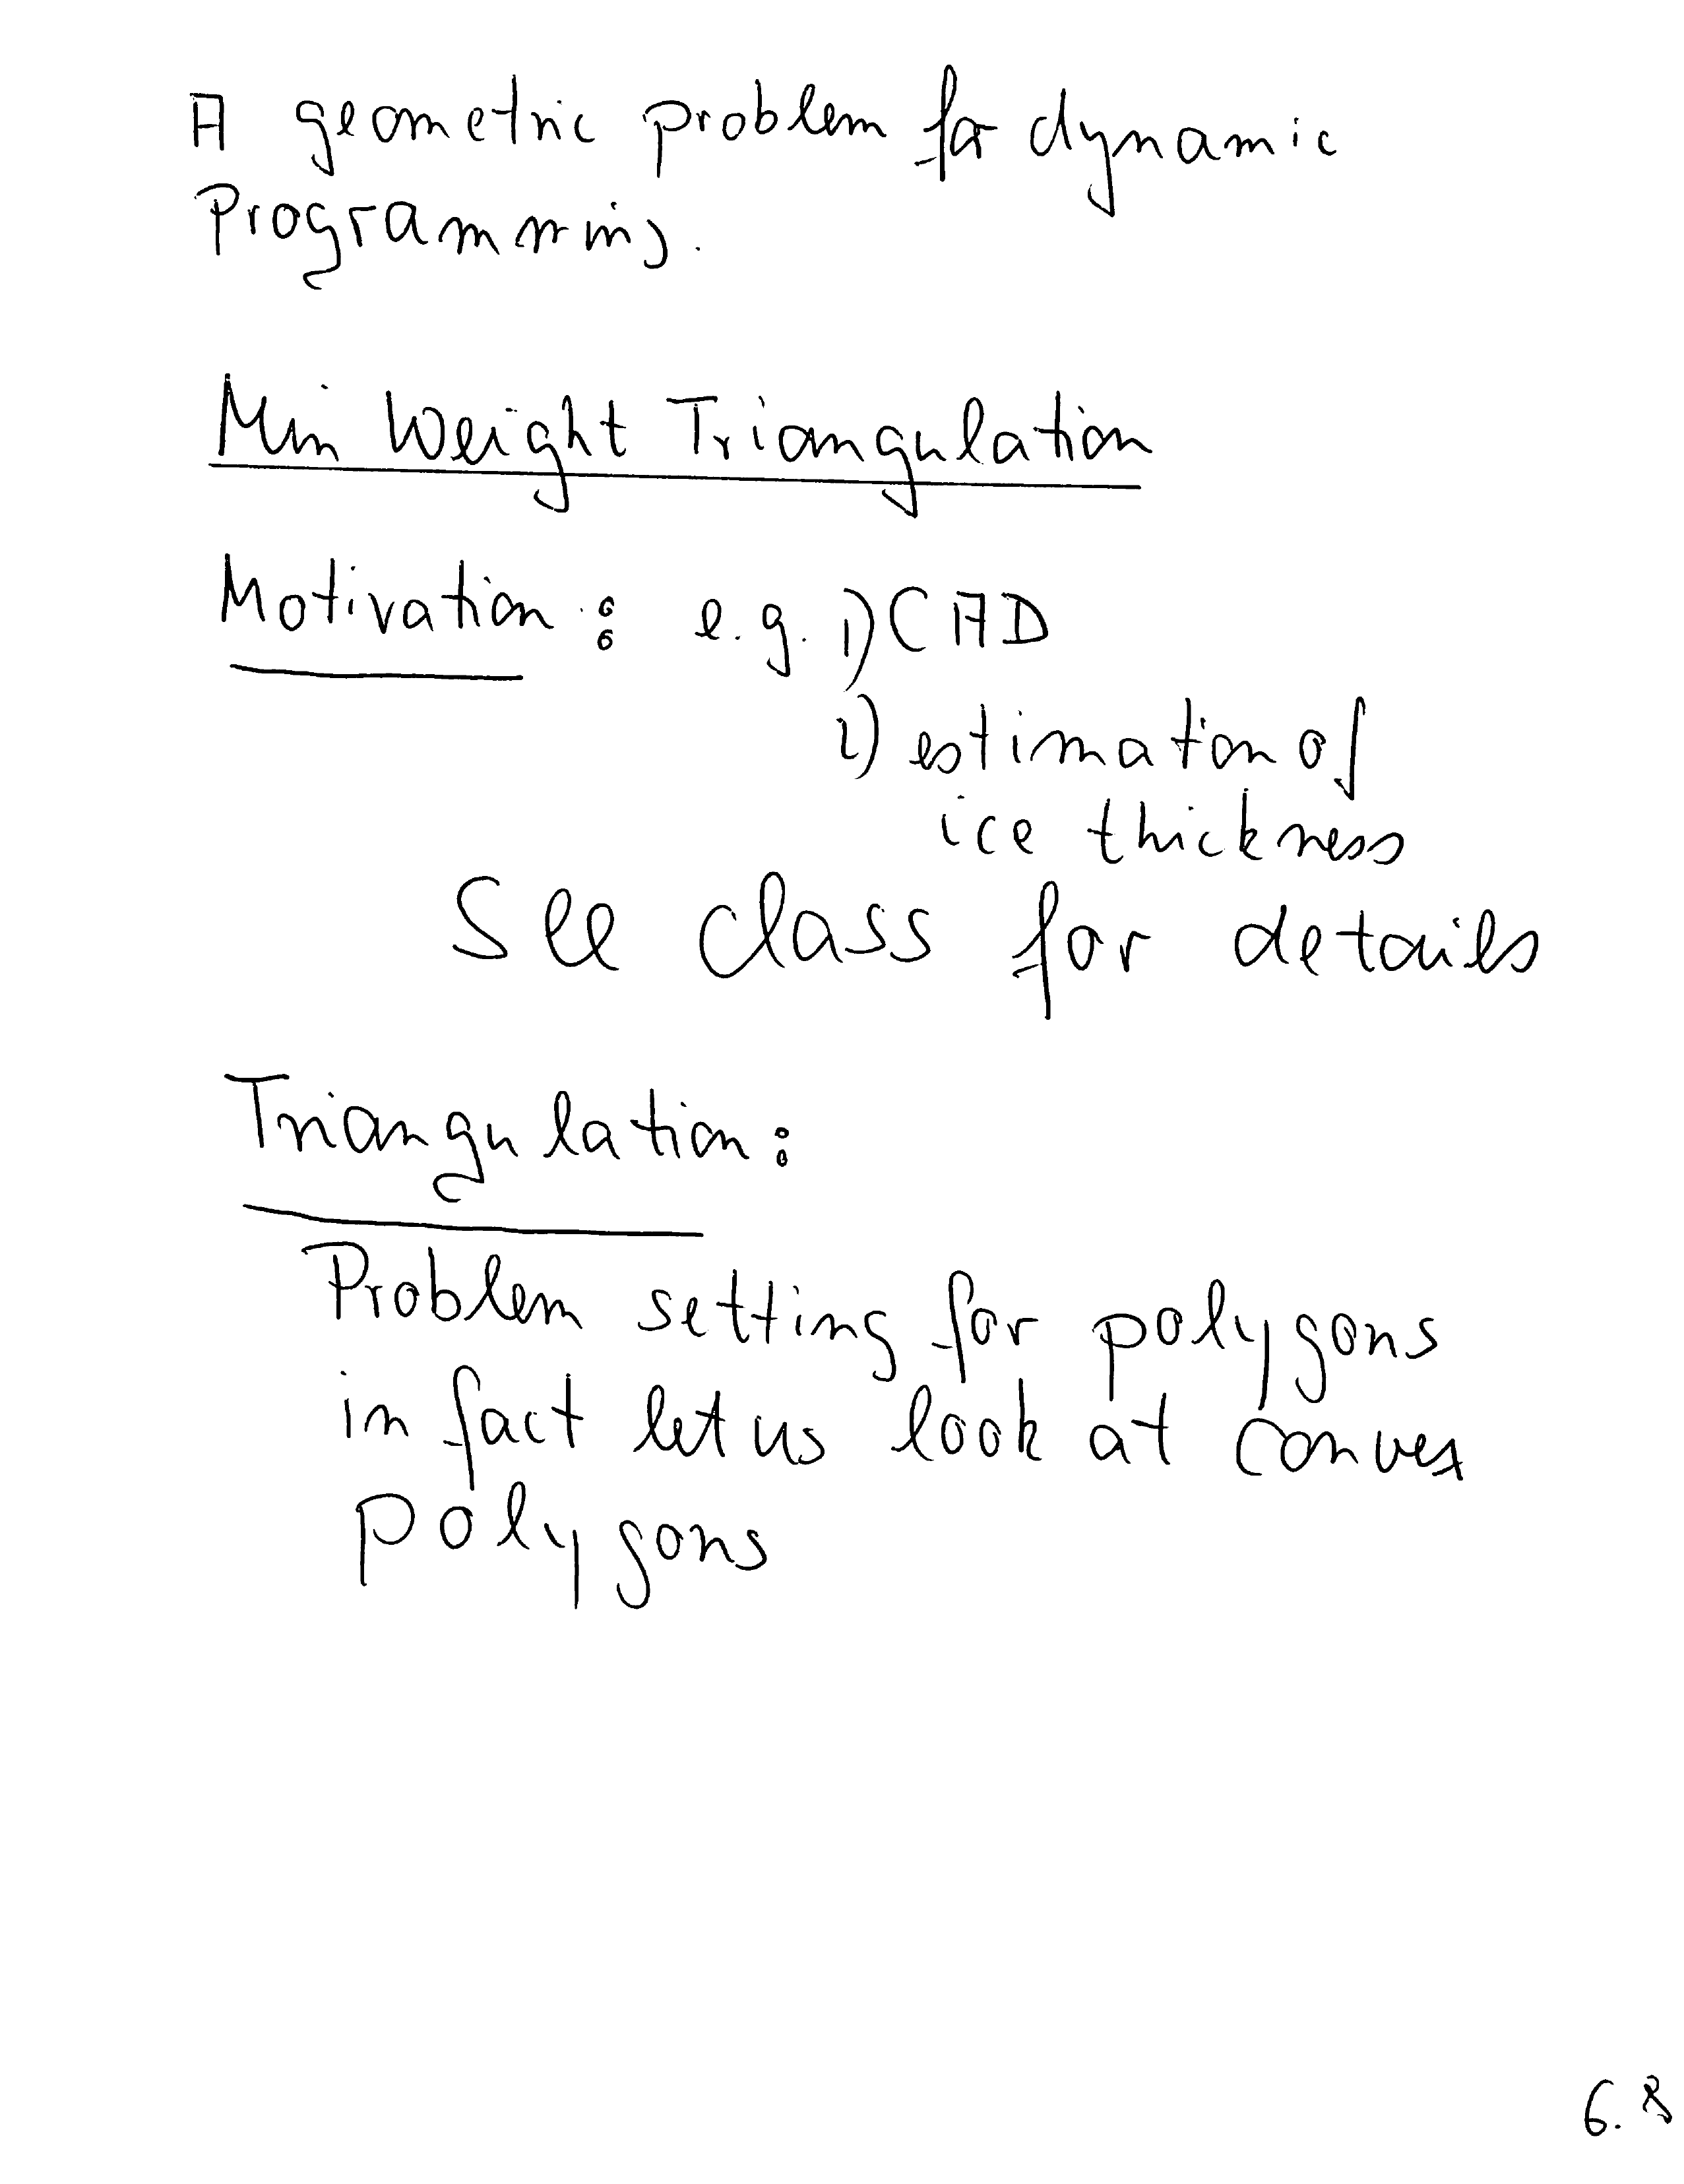 A geometric problem for dynamic
Programming.
Min Weight Triangulation
Motivation: e.g. 1) CAD
2) estimation of
ice thickness
See class for details
Triangulation:
Problem setting for polygons
in fact let us look at convex
polygons
6.8